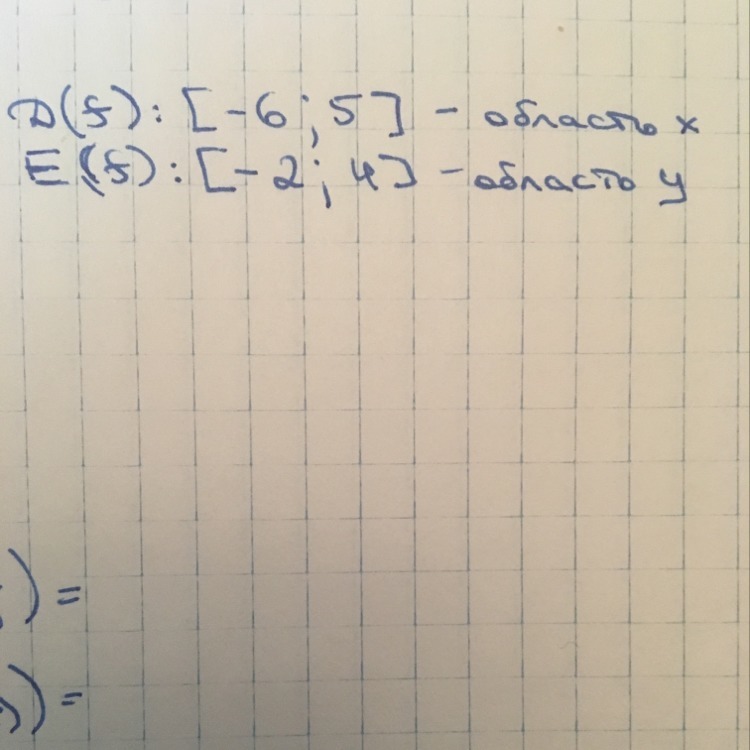 D(f): [-6; 5] - область x
E(f): [-2; 4] - область y
) =
) =